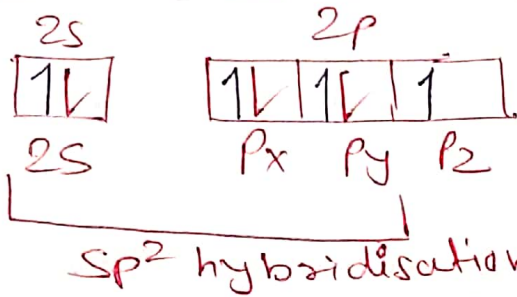 2s 2p
1L 1L 1L 1
2S Px Py Pz
Sp² hybridisation